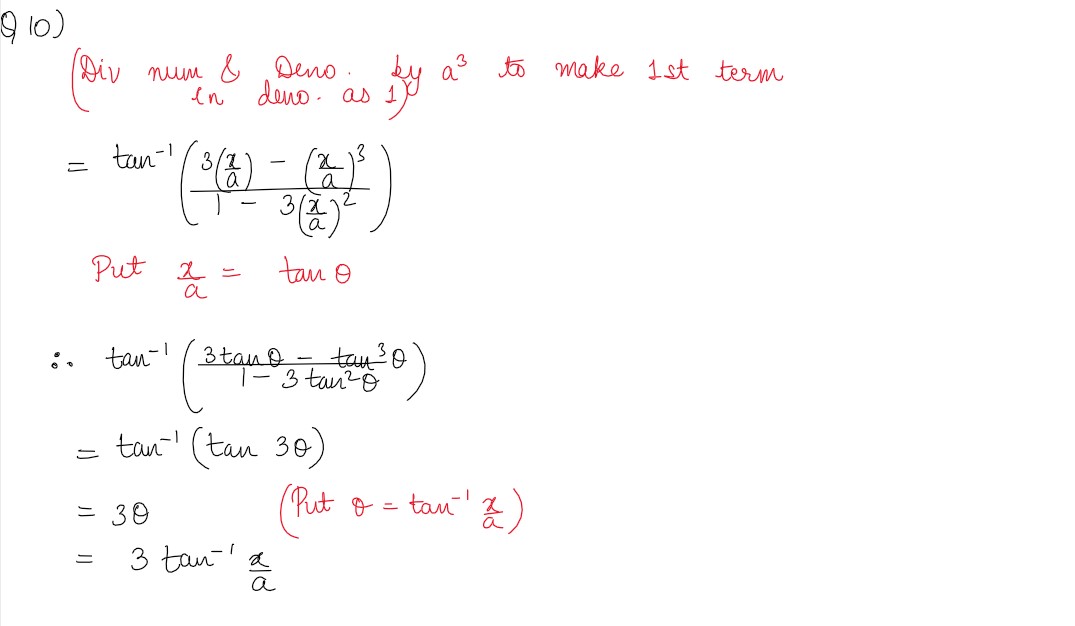 Q 10)
(Div num & Deno. by a³ to make 1st term
in deno. as 1)
= tan⁻¹ ( (3(x/a) − (x/a)³) / (1 − 3(x/a)²) )
Put x/a = tan θ
∴ tan⁻¹ ( (3tanθ − tan³θ) / (1 − 3tan²θ) )
= tan⁻¹ (tan 3θ)
= 3θ (Put θ = tan⁻¹ x/a)
= 3 tan⁻¹ x/a